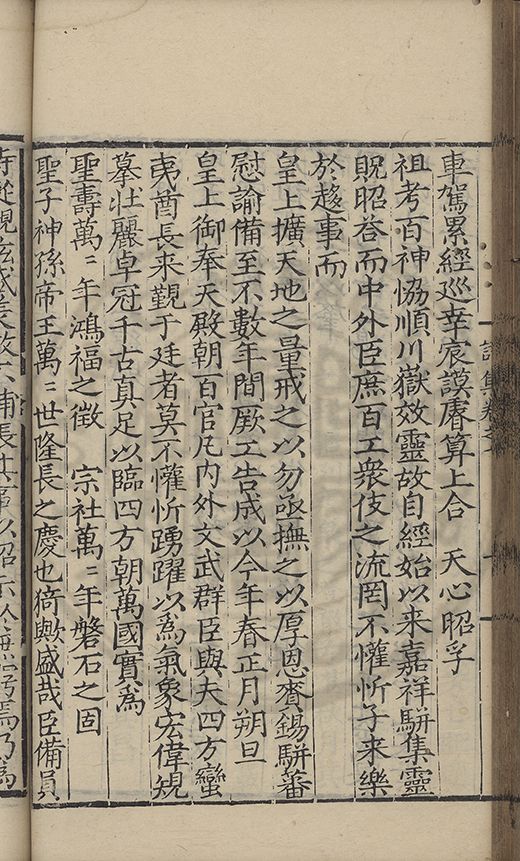 車駕累經巡幸宸謨睿算上合　天心昭孚
祖考百神恊順川嶽效靈故自經始以来嘉祥駢集靈
貺昭荅而中外臣庶百工衆伎之流罔不懽忻子来樂
於趍事而
皇上擴天地之量戒之以勿亟撫之以厚恩賚錫駢蕃
慰諭備至不數年間厥工告成以今年春正月朔旦
皇上御奉天殿朝百官凡内外文武群臣與夫四方蠻
夷酋長来覲于廷者莫不懽忻踴躍以爲氣象宏偉規
摹壮麗卓冠千古真足以臨四方朝萬國實爲
聖壽萬〻年鴻福之徵　宗社萬〻年磐石之固
聖子神孫帝王萬〻世隆長之慶也猗歟盛哉臣備員